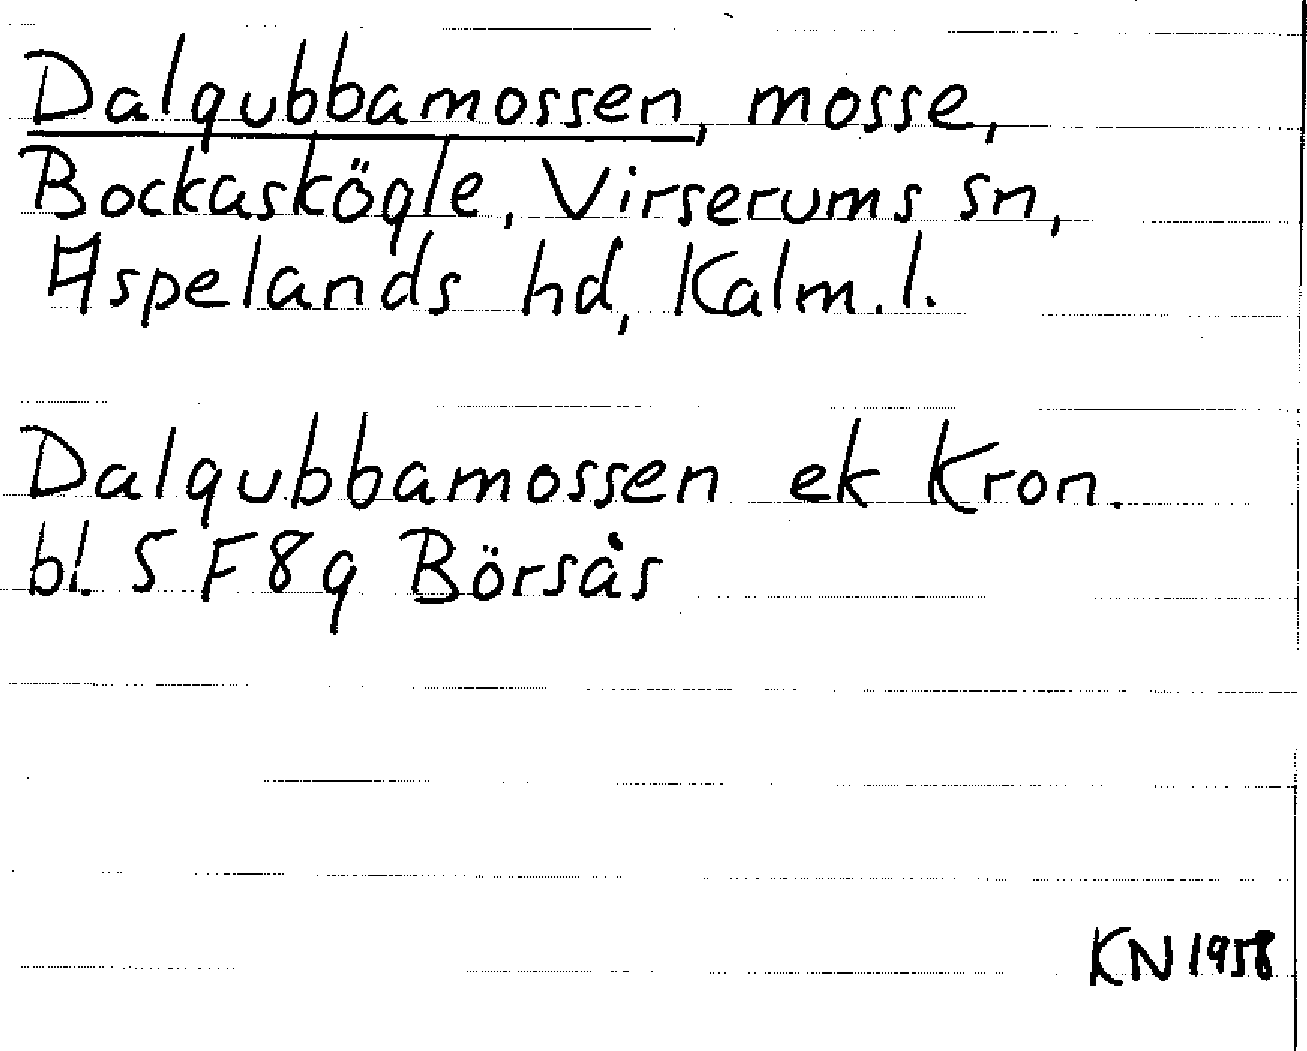 Dalgubbamossen, mosse,
Bockaskögle, Virserums sn,
Aspelands hd, Kalm. l.
Dalgubbamossen ek Kron.
bl. 5 F 8 g Börsås
KN 1958